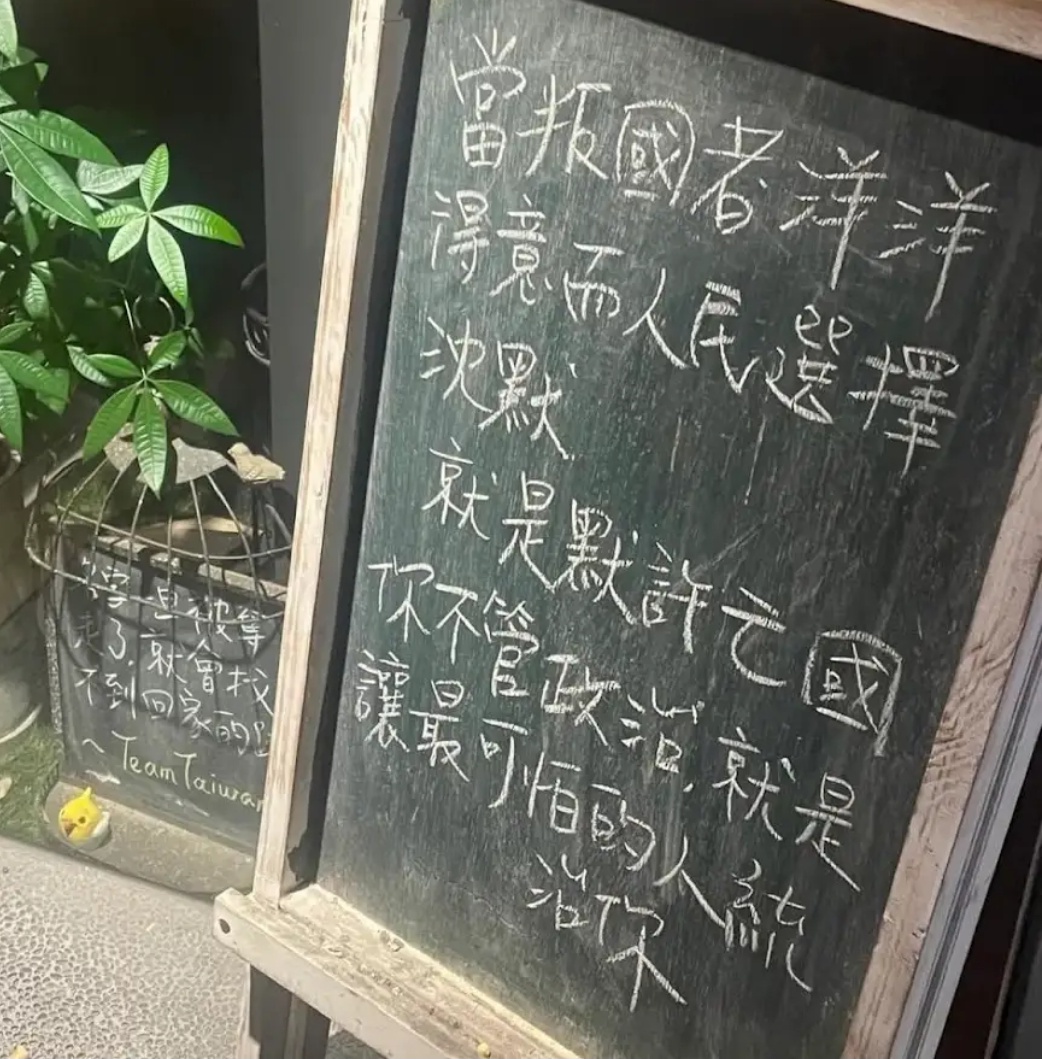 當叛國者洋洋
得意而人民選擇
沈默
就是默許亡國
你不管政治.就是
讓最可怕的人統
治你
走了.就會找
不到回家的
~Team Taiwan